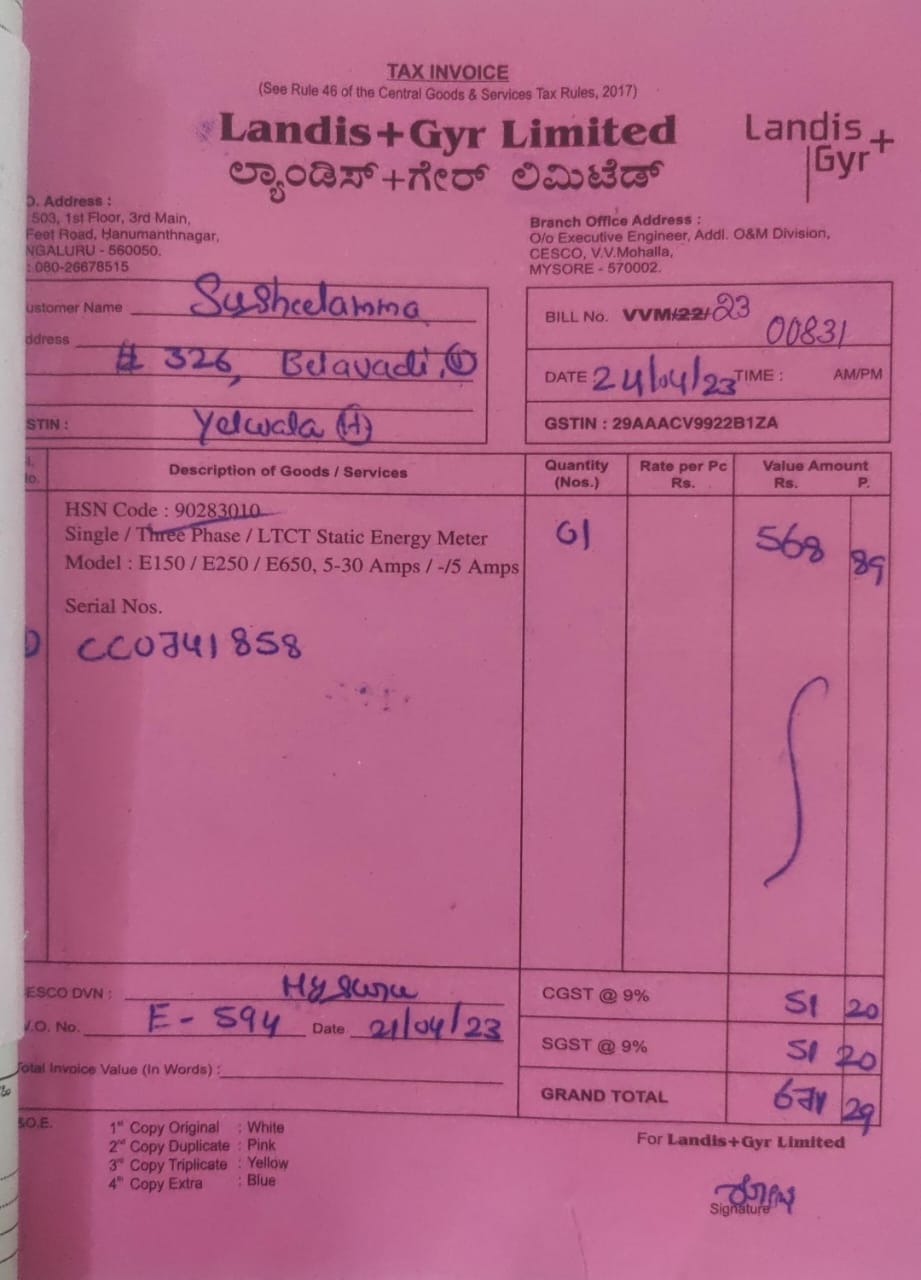 TAX INVOICE
(See Rule 46 of the Central Goods & Services Tax Rules, 2017)
Landis+Gyr Limited
ಲ್ಯಾಂಡಿಸ್+ಗೇರ್ ಲಿಮಿಟೆಡ್
Landis
Gyr+
O. Address :
503, 1st Floor, 3rd Main,
Feet Road, Hanumanthnagar,
NGALURU - 560050.
: 080-26678515
Branch Office Address :
O/o Executive Engineer, Addl. O&M Division,
CESCO, V.V.Mohalla,
MYSORE - 570002.
ustomer Name Susheelamma
ddress
# 326, Belavadi,
STIN : Yelwala (H)
BILL No. VVM/22/23
00831
DATE 24/04/23 TIME : AM/PM
GSTIN : 29AAACV9922B1ZA
Description of Goods / Services
Quantity (Nos.)
Rate per Pc Rs.
Value Amount Rs. P.
HSN Code : 90283010
Single / Three Phase / LTCT Static Energy Meter
Model : E150 / E250 / E650, 5-30 Amps / -/5 Amps
01 568 89
Serial Nos.
CC0741858
ESCO DVN : Mysuru
.O. No. E - 594 Date 21/04/23
Total Invoice Value (In Words) :
CGST @ 9% 51 20
SGST @ 9% 51 20
GRAND TOTAL 671 29
.O.E.
1st Copy Original : White
2nd Copy Duplicate : Pink
3rd Copy Triplicate : Yellow
4th Copy Extra : Blue
For Landis+Gyr Limited
Signature